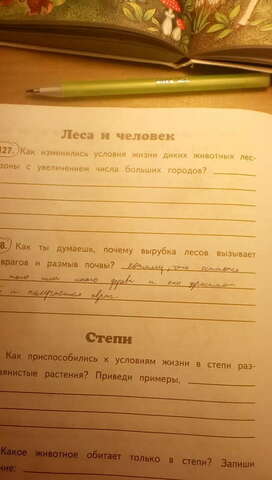 Леса и человек
127. Как изменились условия жизни диких животных лес-
зоны с увеличением числа больших городов?
8. Как ты думаешь, почему вырубка лесов вызывает
врагов и размыв почвы? потому, что
и
и
Степи
Как приспособились к условиям жизни в степи раз-
внистые растения? Приведи примеры.
Какое животное обитает только в степи? Запиши
ние: